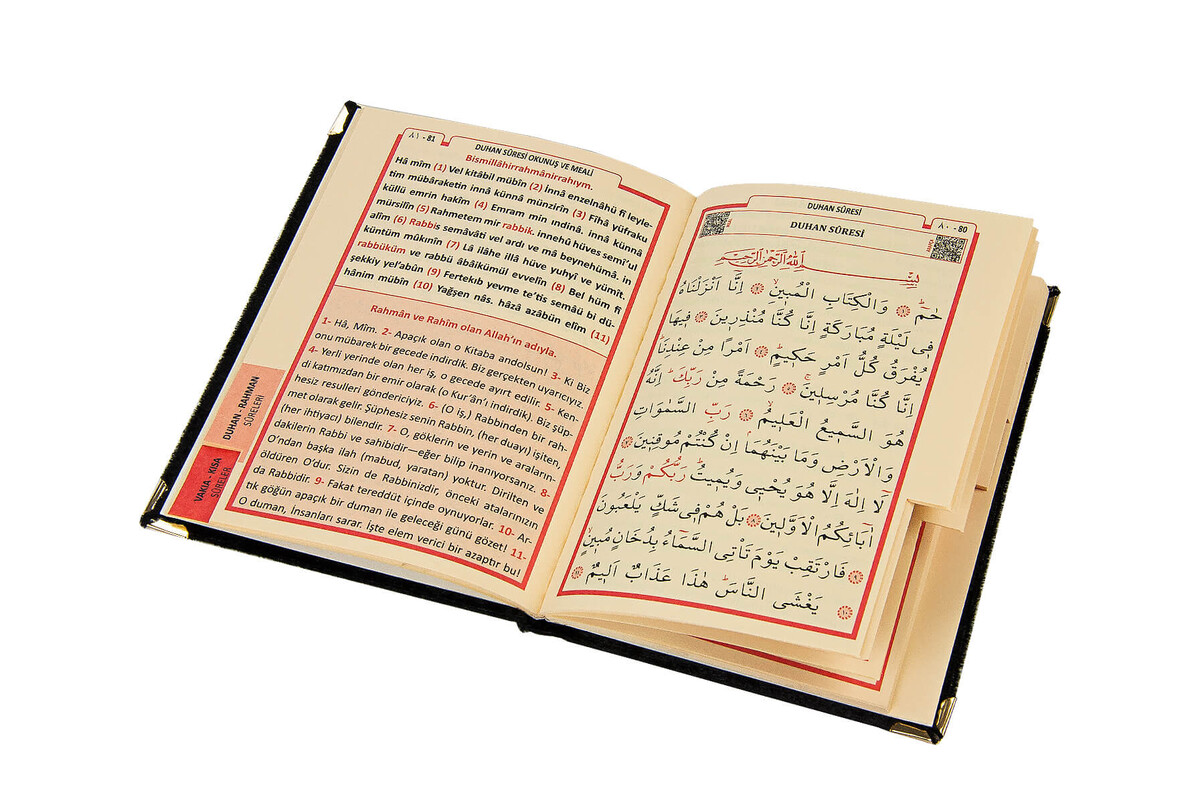 ٨١ - 81
DUHAN SÛRESİ OKUNUŞ VE MEALİ
Bismillâhirrahmânirrahıym.
Hâ mîm (1) Vel kitâbil mübîn (2) İnnâ enzelnâhü fî leyle-
tim mübâraketin innâ künnâ münzirîn (3) Fîhâ yüfraku
küllü emrin hakîm (4) Emram min ındinâ. innâ künnâ
mürsilîn (5) Rahmetem mir rabbik. innehû hüves semî'ul
alîm (6) Rabbis semâvâti vel ardı ve mâ beynehümâ. in
küntüm mûkınîn (7) Lâ ilâhe illâ hüve yuhyî ve yümît.
rabbüküm ve rabbü âbâikümül evvelîn (8) Bel hüm fî
şekkiy yel'abûn (9) Fertekıb yevme te'tis semâü bi dü-
hânim mübîn (10) Yağşen nâs. hâzâ azâbün elîm (11)
Rahmân ve Rahîm olan Allah'ın adıyla.
1- Hâ, Mîm. 2- Apaçık olan o Kitaba andolsun! 3- Ki Biz
onu mübarek bir gecede indirdik. Biz gerçekten uyarıcıyız.
4- Yerli yerinde olan her iş, o gecede ayırt edilir. 5- Ken-
di katımızdan bir emir olarak (o Kur'ân'ı indirdik). Biz şüp-
hesiz resulleri göndericiyiz. 6- (O iş,) Rabbinden bir rah-
met olarak gelir. Şüphesiz senin Rabbin, (her duayı) işiten,
(her ihtiyacı) bilendir. 7- O, göklerin ve yerin ve araların-
dakilerin Rabbi ve sahibidir—eğer bilip inanıyorsanız. 8-
O'ndan başka ilah (mabud, yaratan) yoktur. Dirilten ve
öldüren O'dur. Sizin de Rabbinizdir, önceki atalarınızın
da Rabbidir. 9- Fakat tereddüt içinde oynuyorlar. 10- Ar-
tık göğün apaçık bir duman ile geleceği günü gözet! 11-
O duman, İnsanları sarar. İşte elem verici bir azaptır bu!
DUHAN - RAHMAN
SÛRELERİ
VAKIA - KISA
SÛRELER
DUHAN SÛRESİ
٨٠ - 80
DUHAN SÛRESİ
بِسْمِ اللّٰهِ الرَّحْمٰنِ الرَّحٖيمِ
حٰمٓ ۞ وَالْكِتَابِ الْمُبٖينِ ۞ اِنَّٓا اَنْزَلْنَاهُ
فٖي لَيْلَةٍ مُبَارَكَةٍ اِنَّا كُنَّا مُنْذِرٖينَ ۞ فٖيهَا
يُفْرَقُ كُلُّ اَمْرٍ حَكٖيمٍ ۞ اَمْرًا مِنْ عِنْدِنَا
اِنَّا كُنَّا مُرْسِلٖينَ ۞ رَحْمَةً مِنْ رَبِّكَ اِنَّهُ
هُوَ السَّمٖيعُ الْعَلٖيمُ ۞ رَبِّ السَّمٰوَاتِ
وَالْاَرْضِ وَمَا بَيْنَهُمَا اِنْ كُنْتُمْ مُوقِنٖينَ ۞
لَٓا اِلٰهَ اِلَّا هُوَ يُحْيٖ وَيُمٖيتُ رَبُّكُمْ وَرَبُّ
اٰبَٓائِكُمُ الْاَوَّلٖينَ ۞ بَلْ هُمْ فٖي شَكٍّ يَلْعَبُونَ
۞ فَارْتَقِبْ يَوْمَ تَاْتِى السَّمَٓاءُ بِدُخَانٍ مُبٖينٍ
۞ يَغْشَى النَّاسَ هٰذَا عَذَابٌ اَلٖيمٌ ۞